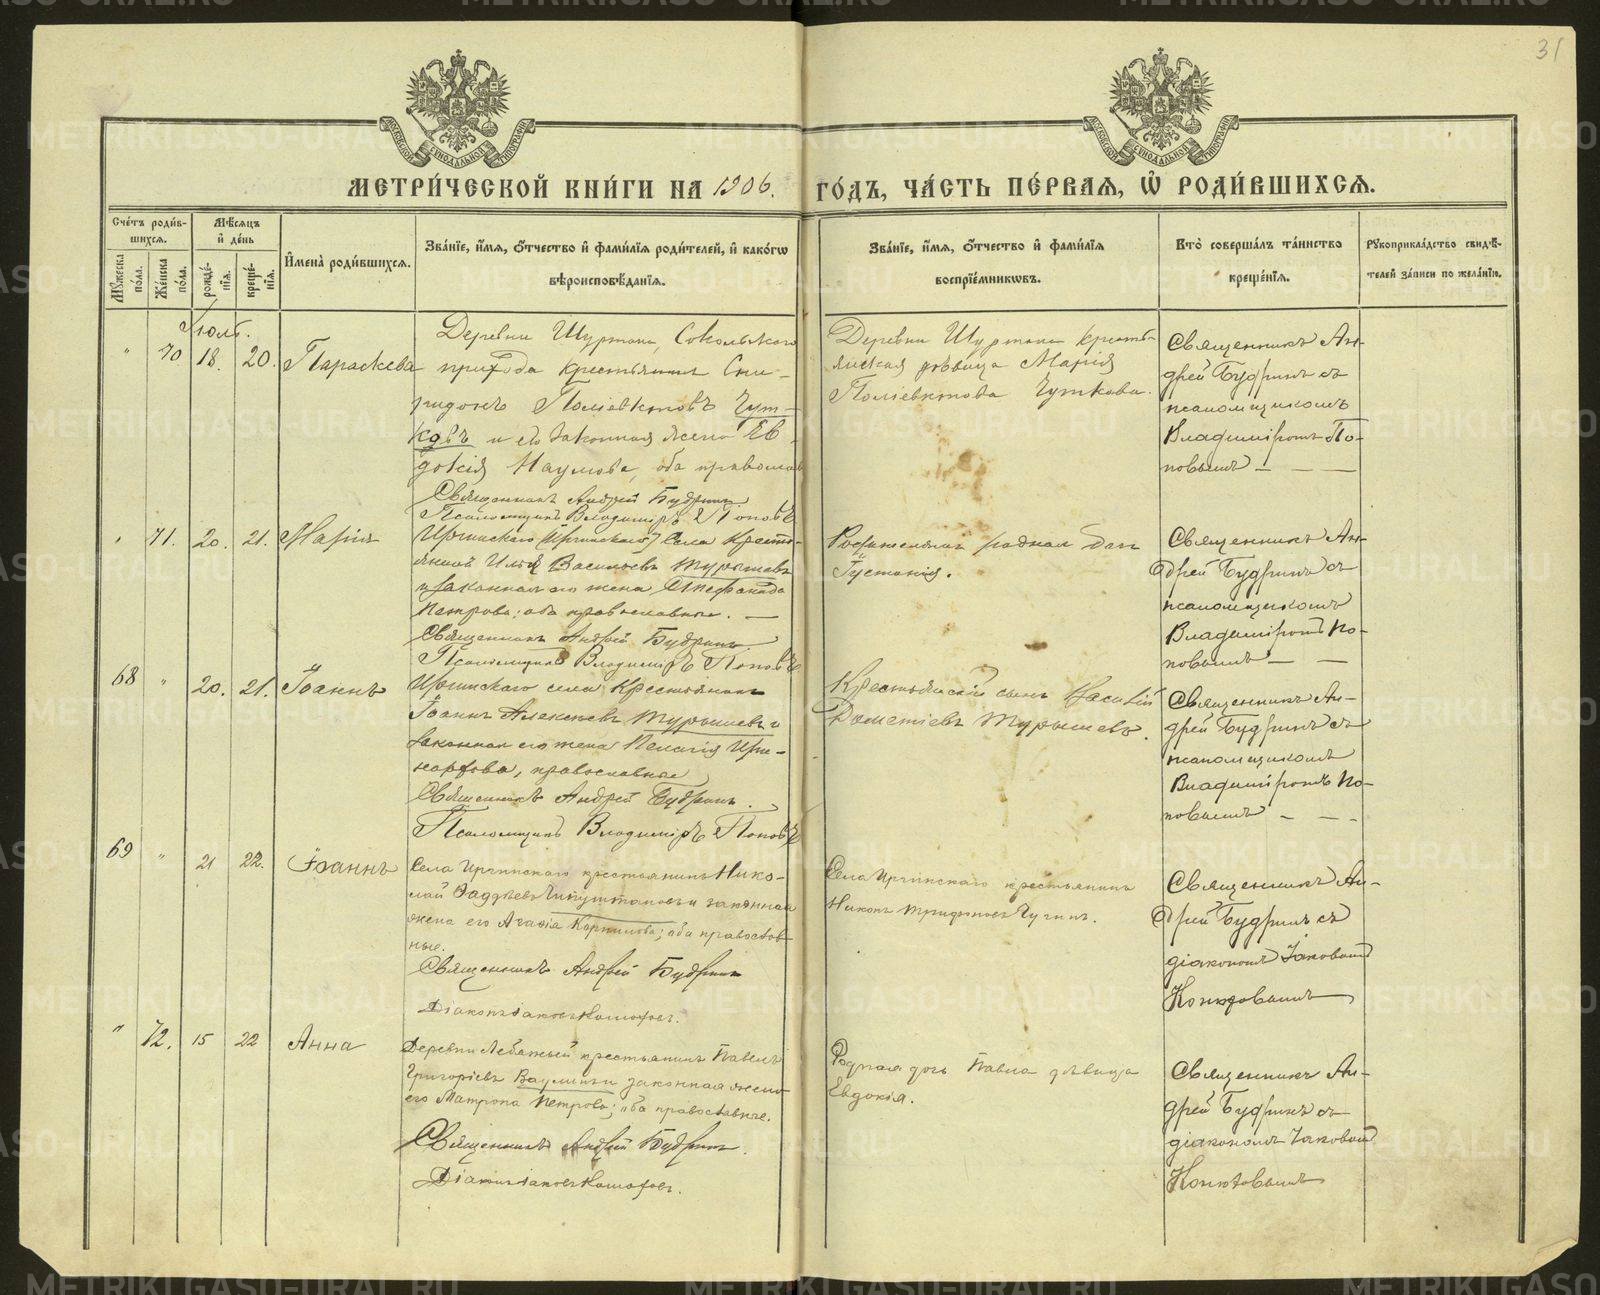 31
МОСКОВСКОЙ СѴНОДАЛЬНОЙ ТИПОГРАФІИ
МОСКОВСКОЙ СѴНОДАЛЬНОЙ ТИПОГРАФІИ
МЕТРИ́ЧЕСКОЙ КНИ́ГИ НА 1906. ГО́ДЪ, ЧА́СТЬ ПЕ́РВАЯ, Ѡ҆ РОДИ́ВШИХСѦ.
Сче́тъ роди́в-
шихсѧ.
Мѣ́сѧцъ
и҆ де́нь
Мꙋ́жеска по́ла.
Же́нска по́ла.
рожде́-
нїѧ.
креще́-
нїѧ.
И҆мена̀ роди́вшихсѧ.
Зва́нїе, и҆́мѧ, ѻ҆́тчество и҆ фами́лїѧ роди́телей, и҆ како́гѡ
вѣроисповѣ́данїѧ.
Зва́нїе, и҆́мѧ, ѻ҆́тчество и҆ фами́лїѧ
воспрїе́мникѡвъ.
Кто̀ соверша́лъ та́инство
креще́нїѧ.
Рꙋкоприкла́дство свидѣ́-
телей за́писи по жела́нїю.
Іюль.
" 70 18. 20. Параскева
Деревни Шуртана, Сокольскаго
прихода крестьянинъ Спи-
ридонъ Поліевктовъ Чут-
ковъ и его законная жена Ев-
докія Наумова, оба православ
Священникъ Андрей Будринъ
Псаломщикъ Владиміръ Поповъ
Деревни Шуртана кресть-
янская дѣвица Марія
Поліевктова Чуткова.
Священникъ Ан-
дрей Будринъ съ
псаломщикомъ
Владиміромъ По-
повымъ — — —
" 71. 20. 21. Марія
Иргинскаго (Иргинскаго) села кресть-
янинъ Илья Васильевъ Турышевъ
и законная его жена Стефанида
Петрова; оба православные. —
Священникъ Андрей Будринъ.
Псаломщикъ Владиміръ Поповъ
Родителями родная дочь
Іустинія.
Священникъ Ан-
дрей Будринъ съ
псаломщикомъ
Владиміромъ По-
повымъ — —
68 " 20. 21. Іоаннъ
Иргинскаго села крестьянинъ
Іоаннъ Алексѣевъ Турышевъ и
законная его жена Пелагія
православные
Священникъ Андрей Будринъ.
Псаломщикъ Владиміръ Поповъ
Крестьянскій сынъ Василій
Дометіевъ Турышевъ.
Священникъ Ан-
дрей Будринъ съ
псаломщикомъ
Владиміромъ По-
повымъ — — —
69 " 21 22. Іоаннъ
Села Иргинскаго крестьянинъ Нико-
лай Фаддѣевъ и законная
жена его Агафія Корнилова; оба православ-
ные.
Священникъ Андрей Будринъ
Діаконъ Іаковъ
Села Иргинскаго крестьянинъ
Никонъ Трифоновъ Чугинъ.
Священникъ Ан-
дрей Будринъ съ
діакономъ Іаковомъ
" 72. 15 22 Анна
Деревни Лебяжьей крестьянинъ Павелъ
Григоріевъ Ваулинъ и законная жена
его Матрона Петрова; оба православные.
Священникъ Андрей Будринъ.
Діаконъ Іаковъ
Родная дочь Павла дѣвица
Евдокія.
Священникъ Ан-
дрей Будринъ съ
діакономъ Іаковомъ
METRIKI.GASO-URAL.RU